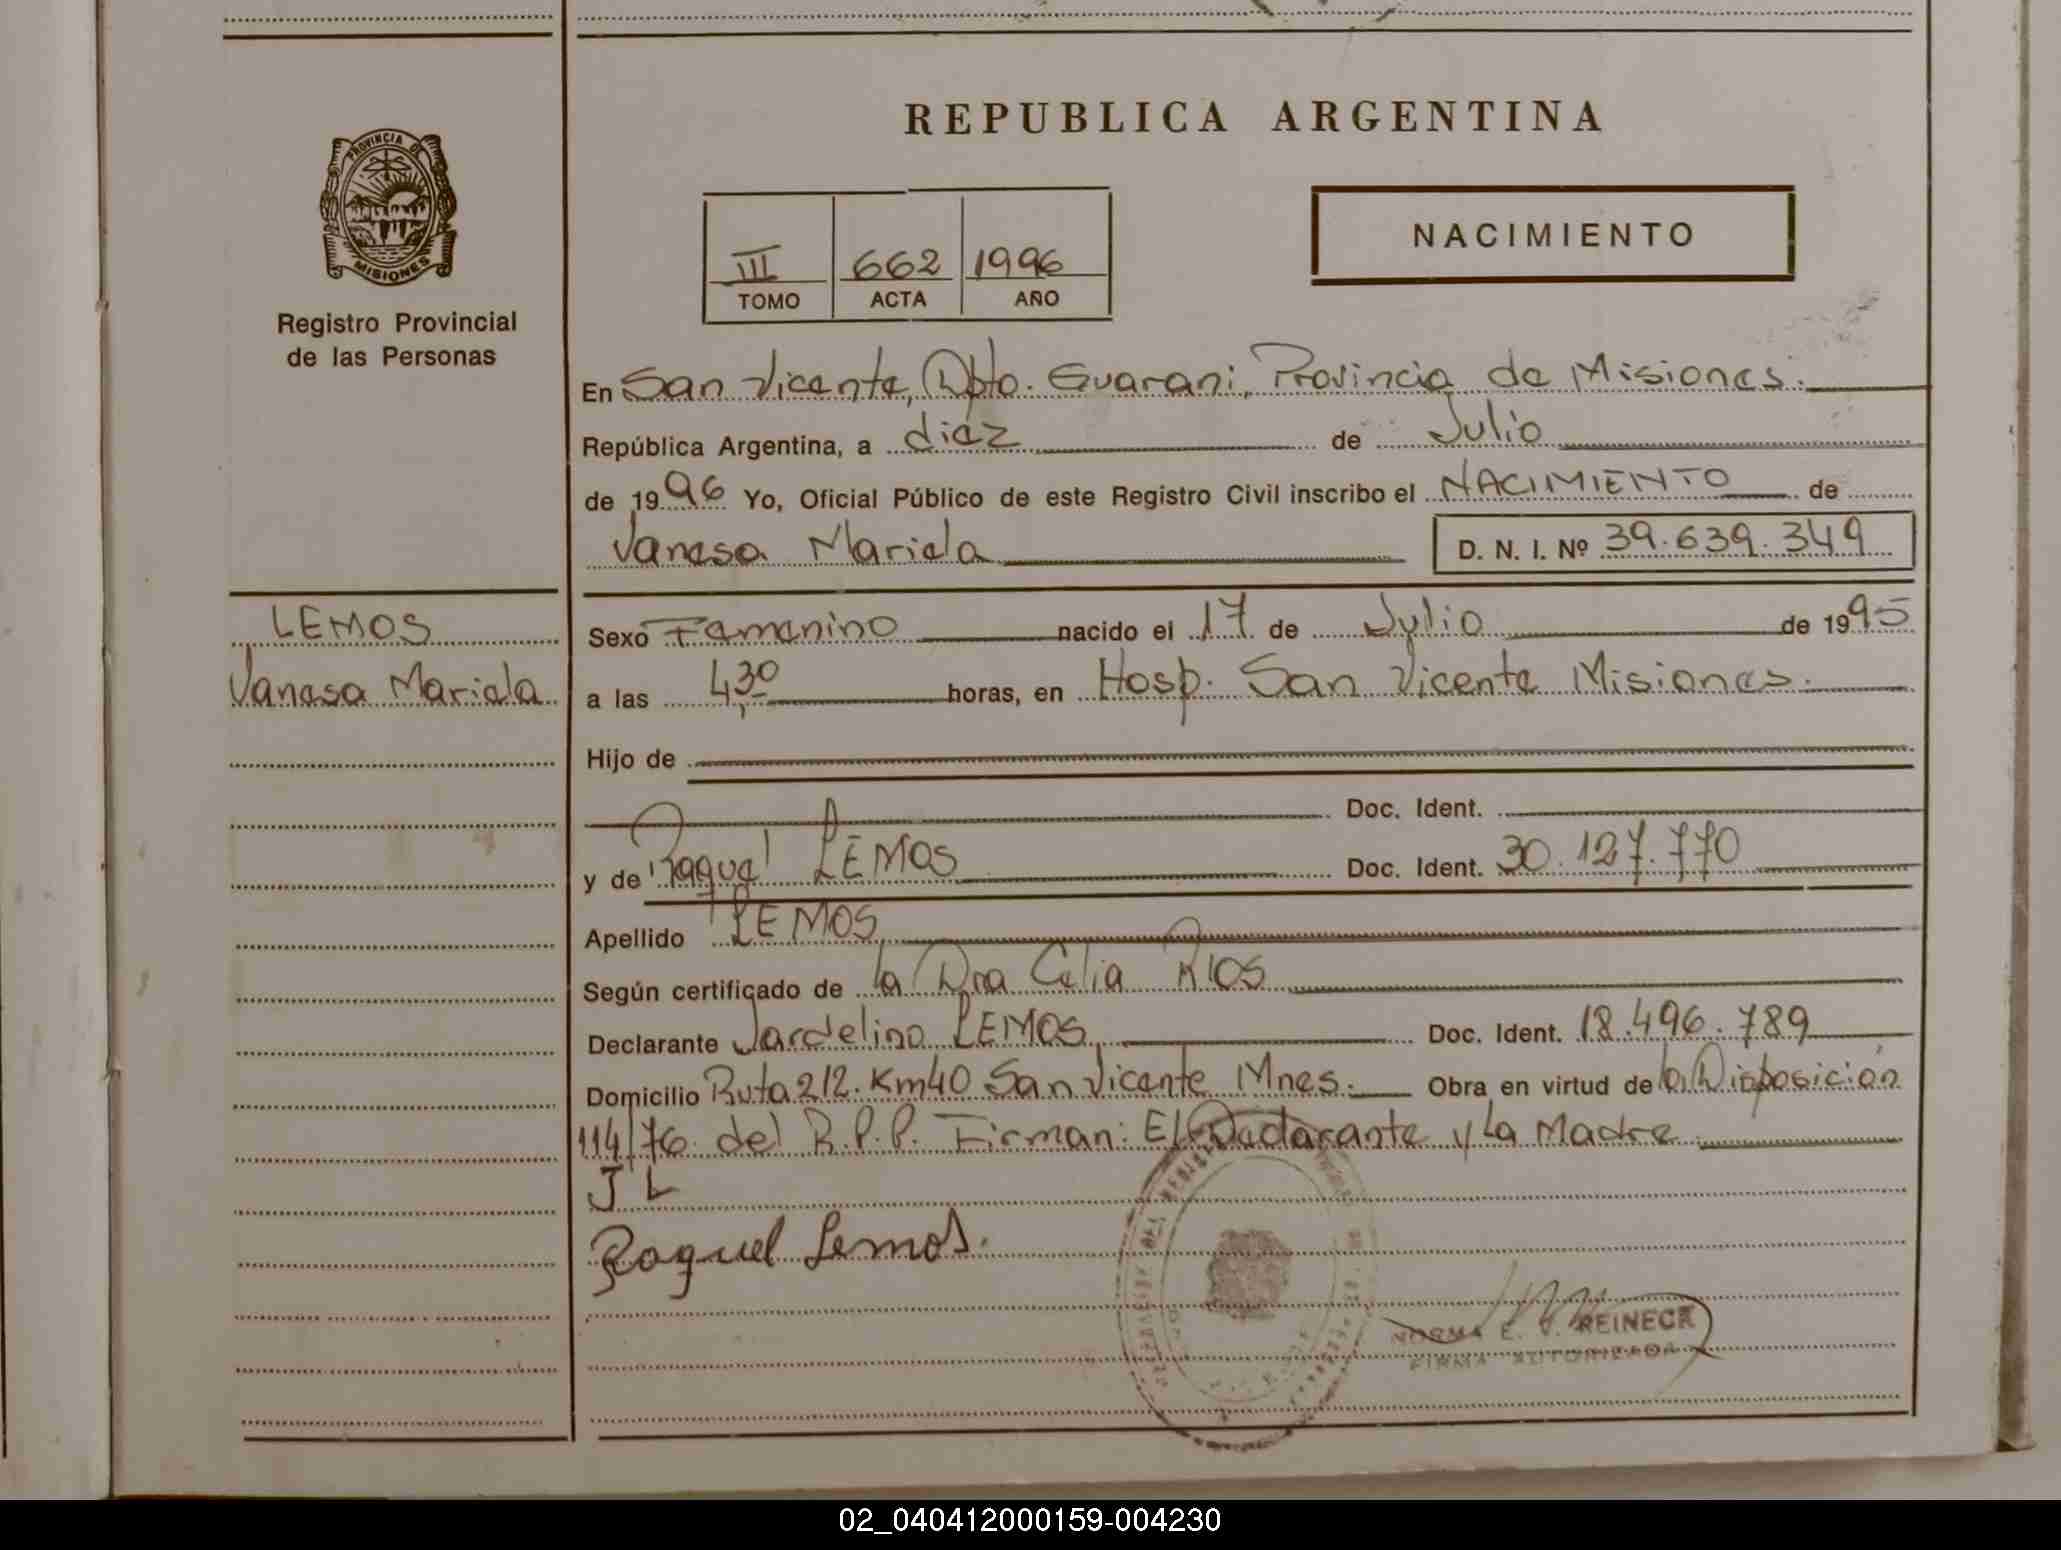 REPUBLICA ARGENTINA
PROVINCIA DE
MISIONES
Registro Provincial
de las Personas
III 662 1996
TOMO ACTA AÑO
NACIMIENTO
En San Vicente, Dpto. Guarani, Provincia de Misiones.
República Argentina, a diez de Julio
de 1996 Yo, Oficial Público de este Registro Civil inscribo el NACIMIENTO de
Vanesa Mariela D. N. I. Nº 39.639.349
LEMOS
Vanesa Mariela
Sexo Femenino nacido el 17 de Julio de 1995
a las 4,30 horas, en Hosp. San Vicente Misiones.
Hijo de
Doc. Ident.
y de Raquel LEMOS Doc. Ident. 30.127.770
Apellido LEMOS
Según certificado de la Dra Celia RIOS
Declarante Jardelino LEMOS Doc. Ident. 18.496.789
Domicilio Ruta 212. Km40 San Vicente Mnes. Obra en virtud de la Disposición
114/76 del R.P.P. Firman: El Declarante y La Madre
J L
Raquel Lemos.
NORMA E. V. REINECK
FIRMA AUTORIZADA
02_040412000159-004230